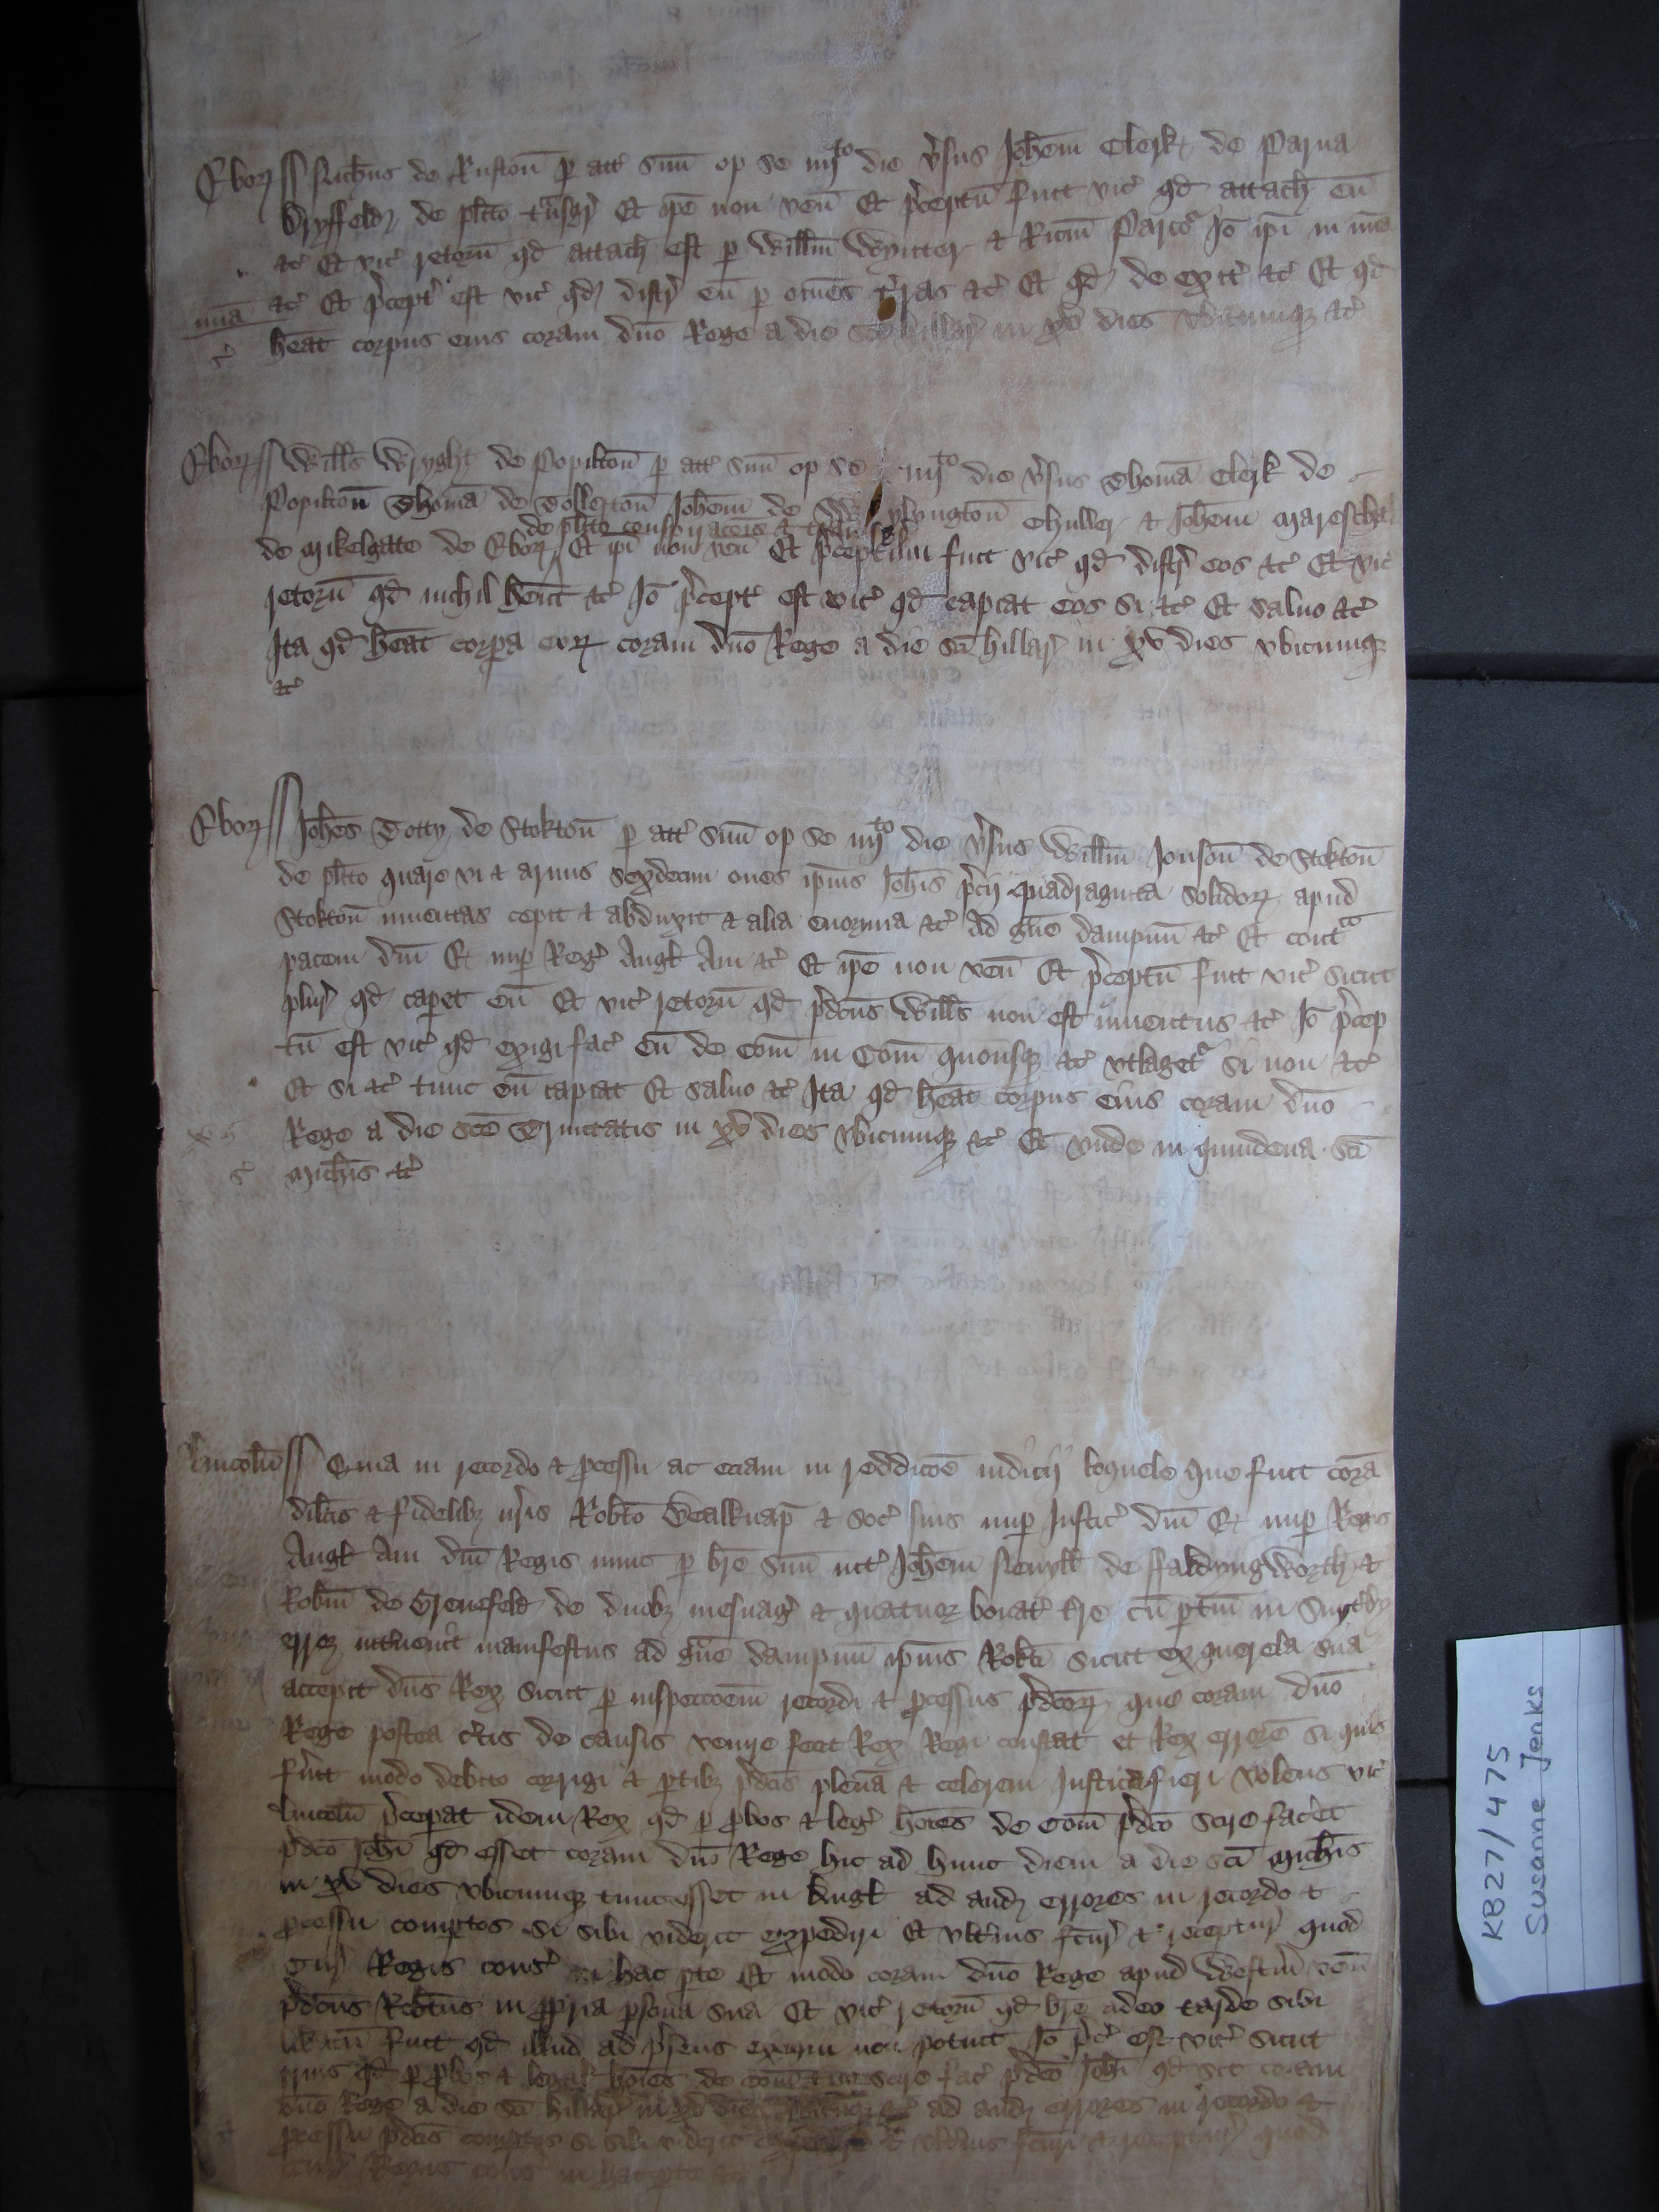 Ebor̃ Ric̃hus de Rustoñ p att̃ suũ op se iiijto die ṽsus Joh̃em Clerk de Parua
Dryffeld de pl̃ito t̃nsgr̃ Et ip̃e non veñ Et p̃ceptũ fuit vic̃ qd̃ attach̃ eũ
&c̃ Et vic̃ retorñ qd̃ attach̃ est p Will̃m Wyntter & Ric̃m Parcõ Iõ ip̃i in mĩa
mĩa &c̃ Et p̃cept̃ est vic̃ qd̃ distr̃ eũ p om̃es t̃ras &c̃ Et qd̃ de exit̃ &c̃ Et qd̃
h̃eat corpus eius coram dño Rege a die sc̃i hillar̃ in xv dies vbicumq3 &c̃
Ebor̃ Will̃s Wryght de Popiltoñ p att̃ suũ op se iiijto die ṽsus Thomã Clerk de
Popiltoñ Thomã de Tollertoñ Joh̃em de yngtoñ Chuller & Joh̃em Mareschal
de pl̃ito conspiracõis & t̃ns
de Mikelgate de Ebor̃ Et ip̃i non veñ Et p̃ceptum fuit vic̃ qd̃ distr̃ eos &c̃ Et vic̃
retorñ qd̃ nichil h̃ent &c̃ Iõ p̃cept̃ est vic̃ qd̃ capiat eos si &c̃ Et saluo &c̃
Ita qd̃ h̃eat corpa eor̃ coram dño Rege a die sc̃i hillar̃ in xv dies vbicumq3
&c̃
Ebor̃ Joh̃es Totty de Stoktoñ p att̃ suũ op se iiijto die ṽsus Will̃m Jonsoñ de Stoktoñ
de pl̃ito quare vi & armis sexdecim oues ip̃ius Joh̃is p̃cij quadraginta solidor̃ apud
Stoktoñ inuentas cepit & abduxit & alia enormia &c̃ Ad g̃ue dampnũ &c̃ Et cont̃a
pacem dñi E. nup Reg̃ Angl̃ Aui &c̃ Et ip̃e non veñ Et p̃ceptũ fuit vic̃ sicut
plur̃ qd̃ capet eũ Et vic̃ retorñ qd̃ p̃dc̃us Will̃s non est inuentus &c̃ Iõ p̃cep
tũ est vic̃ qd̃ exigi fac̃ eũ de Com̃ in Com̃ quousq3 &c̃ vtlaget̃ si non &c̃
Et si &c̃ tunc eũ capiat Et saluo &c̃ Ita qd̃ h̃eat corpus eius coram dño
Rege a die sc̃e Trinitatis in xv dies vbicumq3 &c̃ Et vnde in quindena sc̃i
Mich̃is &c̃
Lincolñ Quia in recordo & p̃cessu ac eciam in reddic̃oe iudicij loquele que fuit corã
dilc̃is & fidelib3 nr̃is Rob̃to Bealknap & soc̃ suis nup Justic̃ dñi E. nup Regis
Angl̃ Aui dñi Regis nunc p br̃e suũ int̃ Joh̃em Neuyll̃ de ffaldyngworth &
Rob̃tm de Grenefeld de duob3 mesuag̃ & quatuor bouat̃ t̃re cũ ptiñ in Snyterby
error int̃uenit manifestus ad g̃ue dampnũ ip̃ius Rob̃ti sicut ex querela sua
accepit dñs Rex sicut p inspecc̃oem recordi & p̃cessus p̃dc̃or̃ que coram dño
Rege postea c̃tis de causis venire fecit Rex Regi constat et Rex errorẽ si quis
fũit modo debito corrigi & ptib3 p̃dc̃is plenã & celerem Justiciã fieri volens vic̃
Lincolñ p̃cepat idem Rex qd̃ p p̃bos & leg̃ hõies de Com̃ p̃dc̃o scire fac̃et
p̃dc̃o Joh̃i qd̃ esset coram dño Rege hic ad hunc diem a die sc̃i Mich̃is
in xv dies vbicumq3 tunc esset in Angl̃ ad aud̃ errores in recordo &
p̃cessu comp̃tos si sibi viderit expediri Et vlt̃ius fc̃ur̃ & receptur̃ quod
Cur̃ Regis cons̃ in hac pte Et modo coram dño Rege apud Westm̃ veñ
p̃dc̃us Rob̃tus in p̃pria psona sua Et vic̃ retorñ qd̃ br̃e adeo tarde sibi
lib̃atũ fuit qd̃ illud ad p̃sens exequi non potuit Iõ p̃c̃ est vic̃ sicut
prius qd̃ p p̃bos & legal̃ hõies de com̃ scire fac̃ p̃dc̃o Joh̃i qd̃ sit coram
dño Rege a die sc̃i hillar̃ in xv dies vbicumq3 &c̃ ad aud̃ errores in recordo &
p̃cessu p̃dc̃is comp̃tos si sibi viderit & vlt̃ius fc̃ur̃ & receptur̃ quod
Cur̃ Regis cons̃ in hac pte &c̃
KB27/475
Susanne Jenks